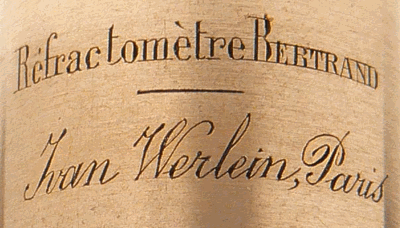 Réfractomètre BERTRAND
Ivan Werlein, Paris